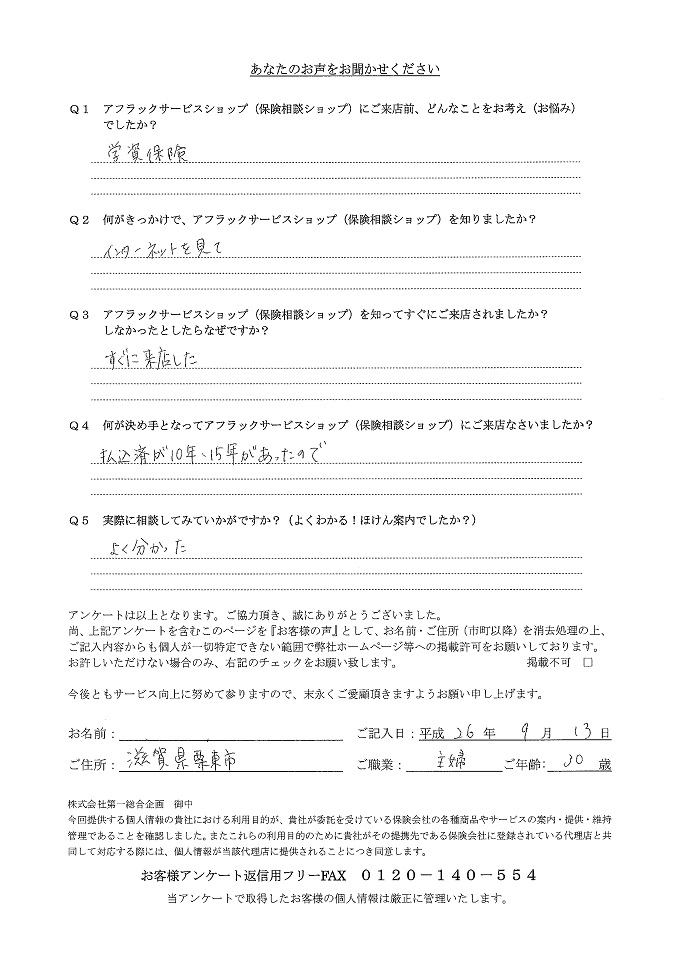 あなたのお声をお聞かせください
Q1 アフラックサービスショップ（保険相談ショップ）にご来店前、どんなことをお考え（お悩み）
でしたか？
学資保険
Q2 何がきっかけで、アフラックサービスショップ（保険相談ショップ）を知りましたか？
インターネットを見て
Q3 アフラックサービスショップ（保険相談ショップ）を知ってすぐにご来店されましたか？
しなかったとしたらなぜですか？
すぐに来店した
Q4 何が決め手となってアフラックサービスショップ（保険相談ショップ）にご来店なさいましたか？
払込済が10年、15年があったので
Q5 実際に相談してみていかがですか？（よくわかる！ほけん案内でしたか？）
よく分かった
アンケートは以上となります。ご協力頂き、誠にありがとうございました。
尚、上記アンケートを含むこのページを『お客様の声』として、お名前・ご住所（市町以降）を消去処理の上、
ご記入内容からも個人が一切特定できない範囲で弊社ホームページ等への掲載許可をお願いしております。
お許しいただけない場合のみ、右記のチェックをお願い致します。 掲載不可 □
今後ともサービス向上に努めて参りますので、末永くご愛顧頂きますようお願い申し上げます。
お名前： ご記入日：平成 26 年 9 月 13 日
ご住所： 滋賀県栗東市 ご職業： 主婦 ご年齢： 30 歳
株式会社第一総合企画 御中
今回提供する個人情報の貴社における利用目的が、貴社が委託を受けている保険会社の各種商品やサービスの案内・提供・維持
管理であることを確認しました。またこれらの利用目的のために貴社がその提携先である保険会社に登録されている代理店と共
同して対応する際には、個人情報が当該代理店に提供されることにつき同意します。
お客様アンケート返信用フリーFAX 0120－140－554
当アンケートで取得したお客様の個人情報は厳正に管理いたします。